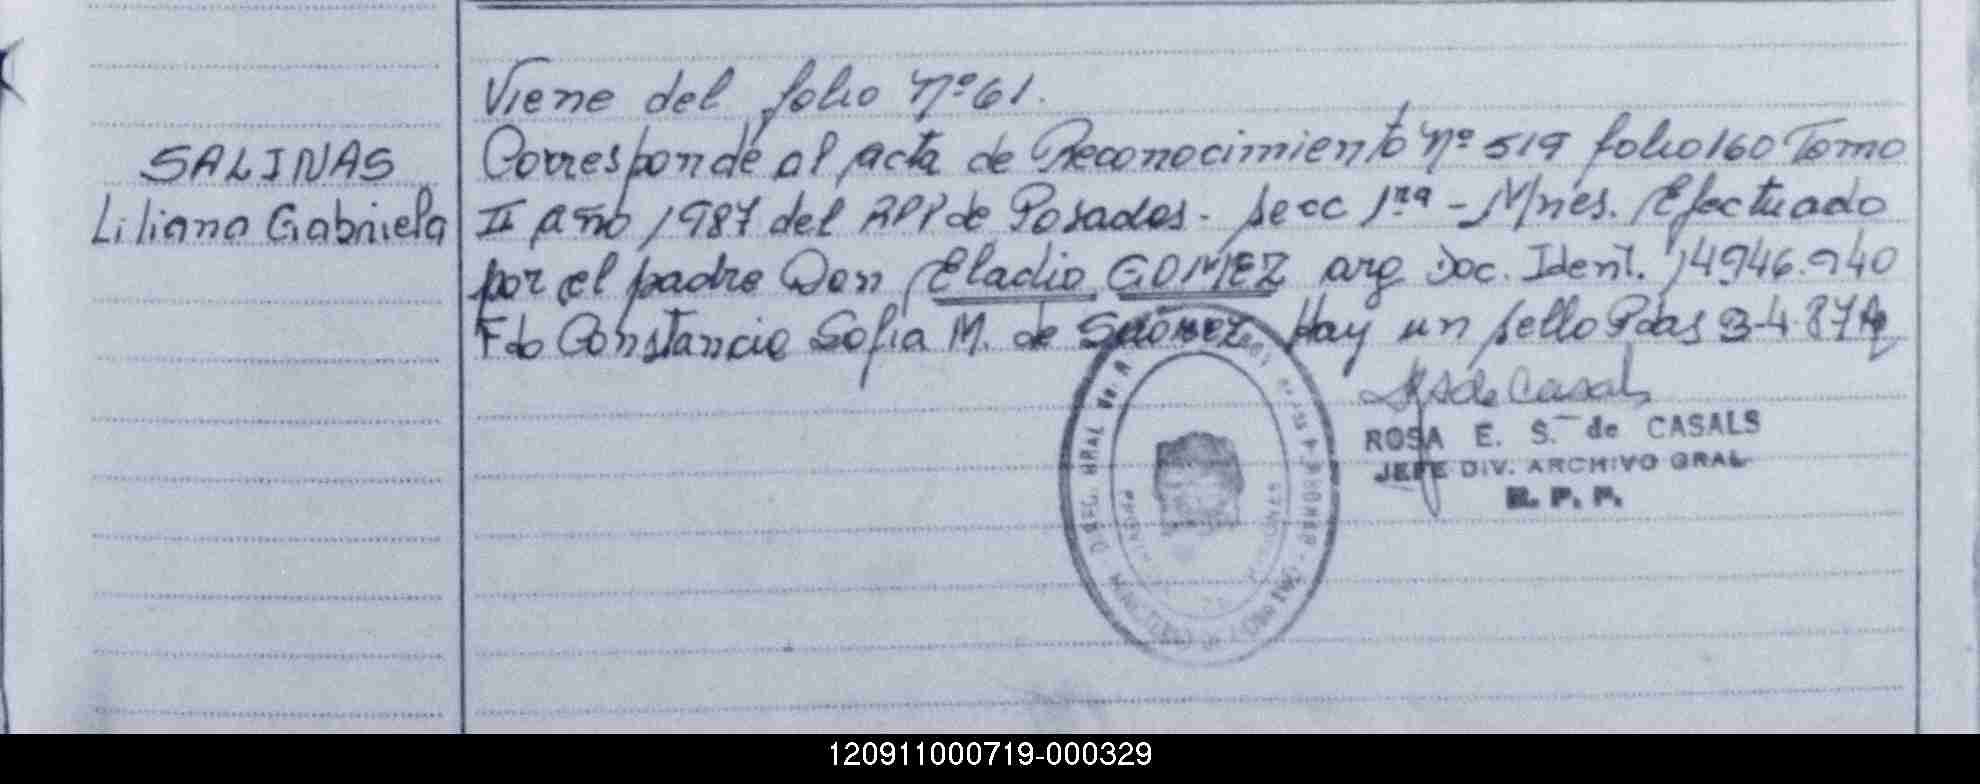 Viene del folio Nº 61.
SALINAS
Liliana Gabriela
Corresponde al acta de Reconocimiento Nº 519 folio 160 Tomo
II año 1987 del RPP de Posadas - secc 1ra - Mnes. Efectuado
por el padre Don Eladio GOMEZ arg Doc. Ident. 14946.940
Fdo Constancio Sofia M. de Hay un sello Pdas 3-4-87
ROSA E. S. de CASALS
JEFE DIV. ARCHIVO GRAL
R. P. P.
120911000719-000329